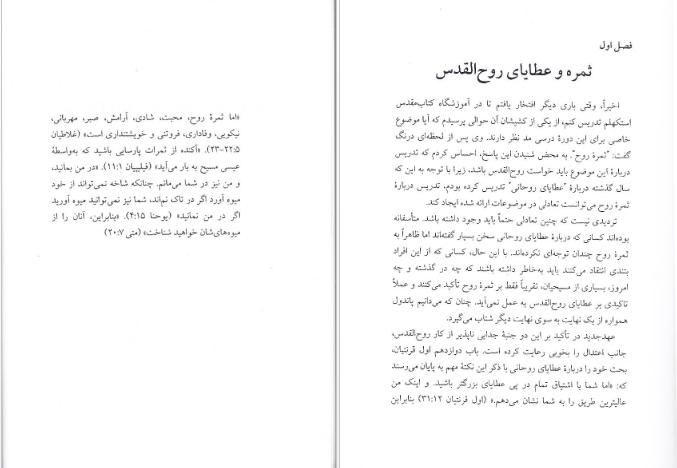 فصل اول
ثمره و عطایای روح‌القدس
اخیراً، وقتی باری دیگر افتخار یافتم تا در آموزشگاه کتاب‌مقدس
استکهلم تدریس کنم، از یکی از کشیشان آن حوالی پرسیدم که آیا موضوع
خاصی برای این دورهٔ درسی مد نظر دارند. وی پس از لحظه‌ای درنگ
گفت: "ثمرهٔ روح". به محض شنیدن این پاسخ، احساس کردم که تدریس
دربارهٔ این موضوع باید خواست روح‌القدس باشد، زیرا با توجه به این که
سال گذشته دربارهٔ "عطایای روحانی" تدریس کرده بودم، تدریس دربارهٔ
ثمرهٔ روح می‌توانست تعادلی در موضوعات ارائه شده ایجاد کند.
تردیدی نیست که چنین تعادلی حتماً باید وجود داشته باشد. متأسفانه
بوده‌اند کسانی که دربارهٔ عطایای روحانی سخن بسیار گفته‌اند اما ظاهراً به
ثمرهٔ روح چندان توجه‌ای نکرده‌اند. با این حال، کسانی که از این افراد
بتندی انتقاد می‌کنند باید به‌خاطر داشته باشند که چه در گذشته و چه
امروز، بسیاری از مسیحیان، تقریباً فقط بر ثمرهٔ روح تأکید می‌کنند و عملاً
تاکیدی بر عطایای روح‌القدس به عمل نمی‌آید. چنان که می‌دانیم پاندول
همواره از یک نهایت به سوی نهایت دیگر شتاب می‌گیرد.
عهدجدید در تأکید بر این دو جنبهٔ جدایی ناپذیر از کار روح‌القدس،
جانب اعتدال را بخوبی رعایت کرده است. باب دوازدهم اول قرنتیان،
بحث خود را دربارهٔ عطایای روحانی با ذکر این نکتهٔ مهم به پایان می‌رسند
که: «اما شما با اشتیاق تمام در پی عطایای بزرگتر باشید. و اینک من
عالیترین طریق را به شما نشان می‌دهم.» (اول قرنتیان ۳۱:۱۲) بنابراین
«اما ثمرهٔ روح، محبت، شادی، آرامش، صبر، مهربانی،
نیکویی، وفاداری، فروتنی و خویشتنداری است» (غلاطیان
۲۲:۵-۲۳). «آکنده از ثمرات پارسایی باشید که به‌واسطهٔ
عیسی مسیح به بار می‌آید» (فیلیپیان ۱۱:۱). «در من بمانید،
و من نیز در شما می‌مانم. چنانکه شاخه نمی‌تواند از خود
میوه آورد اگر در تاک نماند، شما نیز نمی‌توانید میوه آورید
اگر در من نمانید» (یوحنا ۴:۱۵). «بنابراین، آنان را از
میوه‌های‌شان خواهید شناخت» (متی ۲۰:۷)